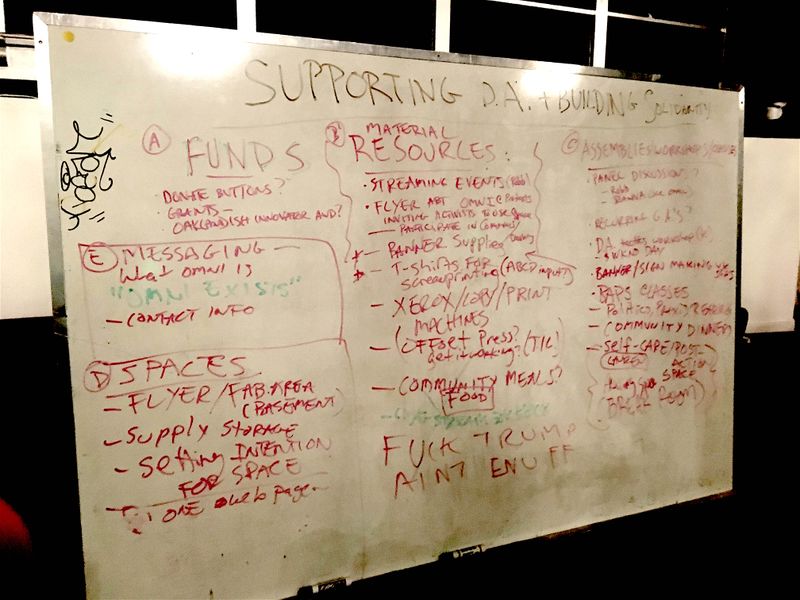 SUPPORTING D.A. + BUILDING SOLIDARITY
A FUNDS
• DONATE BUTTONS?
GRANTS —
OAKLANDISH INNOVATOR AWD?
E MESSAGING —
What omni is
"OMNI EXISTS"
— CONTACT INFO
D SPACES
— FLYER/FAB. AREA
(BASEMENT)
— Supply STORAGE
— Setting INTENTION
FOR SPACE
ONE web page
B MATERIAL
RESOURCES:
• STREAMING EVENTS (Rob)
• FLYER ABT OMNI
INVITING ACTIVISTS TO USE Space
— PARTICIPATE IN
— BANNER Supplies
— T-SHIRTS FOR
screenprinting (ABCD inputs)
— XEROX/COPY/PRINT
MACHINES
(OFFORT Press?
get it working? (TIL)
— COMMUNITY MEALS?
FOOD
FUCK TRUMP
AIN'T ENUFF
C ASSEMBLIES/WORKSHOPS/
• PANEL DISCUSSIONS?
- Robb
• RECURRING G.A.'s?
• D.A. tactics workshop
WKND DAY
• BANNER/SIGN MAKING
• BAPS CLASSES
— COMMUNITY DINNERS
— SELF-CARE/POST-
ACTION
SPACE